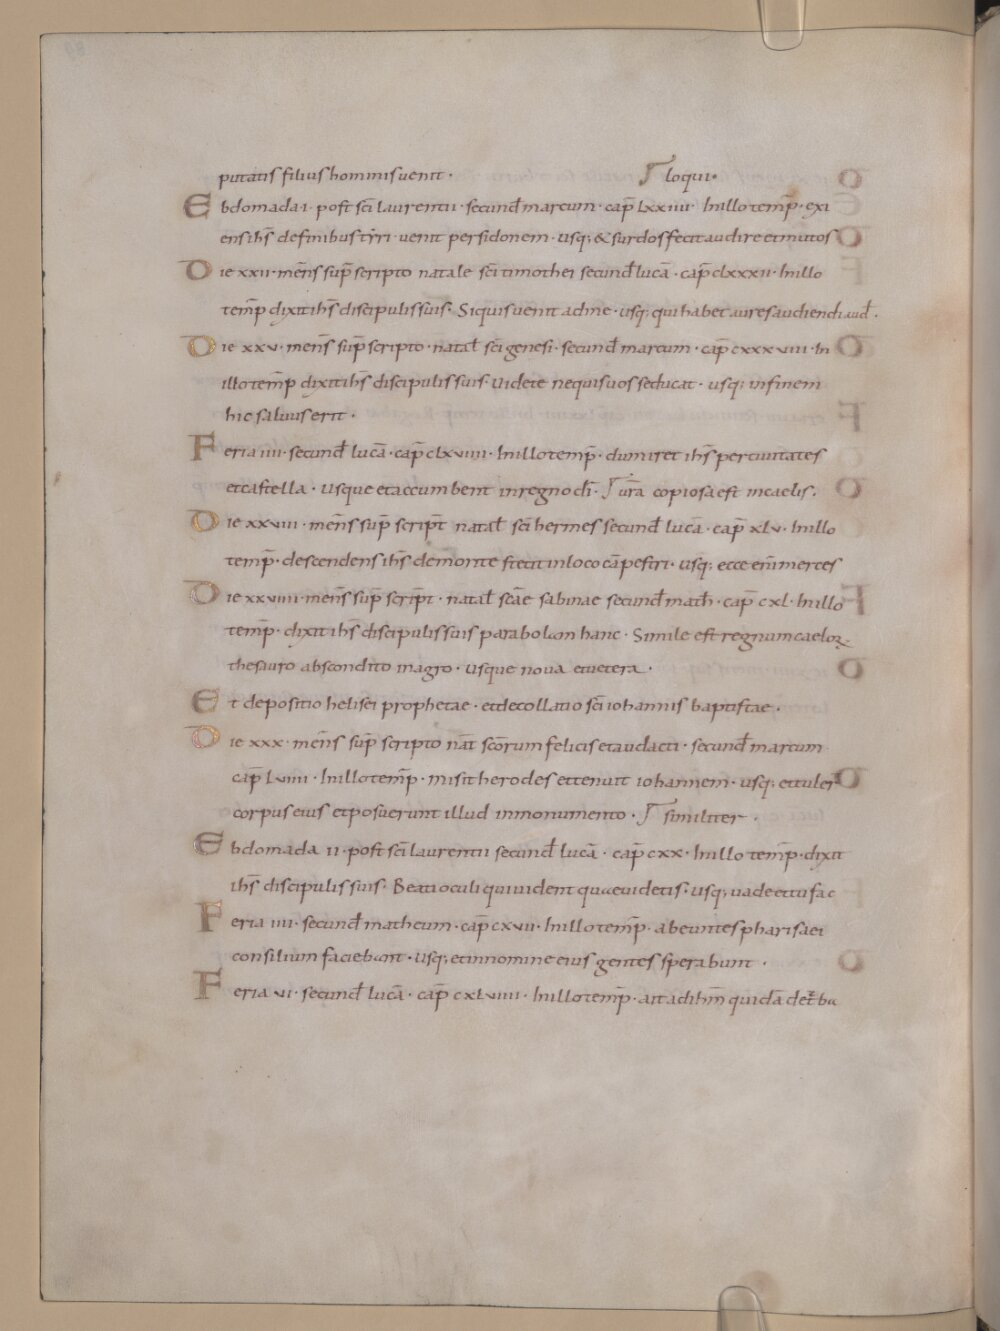 putatis filius hominis uenit · loqui·
Ebdomada·I· post sc̄i laurentii · secund̄ marcum · cap̄ lxxiiii · In illo temp̄ · exi
ens ih̄s de finibus tyri · uenit per sidonem · usq; & surdos fecit audire et mutos
Die xxii · mens̄ sup̄ scripto natale sc̄i timothei secund̄ lucā · cap̄ clxxxii · In illo
temp̄ dixit ih̄s discipulis suis· Si quis uenit ad me · usq; qui habet aures audiendi aud̄ ·
Die xxv · mens̄ sup̄ scripto · natal̄ sc̄i genesi · secund̄ marcum · cap̄ cxxxviii · In
illo temp̄ dixit ih̄s discipulis suis· Uidete ne quis uos seducat · usq; in finem
hic saluus erit ·
Feria iiii · secund̄ lucā · cap̄ clxviiii · In illo temp̄ · dum iret ih̄s per ciuitates
et castella · usque et accumbent in regno dī · ura copiosa est in caelis.
Die xxviii · mens̄ sup̄ script̄ natal̄ sc̄i hermes secund̄ lucā · cap̄ xlv · In illo
temp̄ · descendens ih̄s de monte stetit in loco cāpestri · usq; ecce enī merces
Die xxviiii · mens̄ sup̄ script̄ · natal̄ scāe sabinae secund̄ math̄ · cap̄ cxl · In illo
temp̄ · dixit ih̄s discipulis suis parabolam hanc · Simile est regnum caeloꝝ
thesauro abscondito in agro · usque noua et uetera ·
Et depositio helisei prophetae · et decollatio sc̄i iohannis baptistae ·
Die xxx · mens̄ sup̄ scripto nat̄ scōrum felicis et audacti · secund̄ marcum
cap̄ lviiii · In illo temp̄ · misit herodes et tenuit iohannem · usq; et tuler̄
corpus eius et posuerunt illud in monumento · similiter ·
Ebdomada II · post sc̄i laurentii secund̄ lucā · cap̄ cxx · In illo temp̄ · dixit
ih̄s discipulis suis· Beati oculi qui uident quae uidetis · usq; uade et tu fac
Feria iiii · secund̄ matheum · cap̄ cxvii · In illo temp̄ · abeuntes pharisaei
consilium faciebant · usq; et in nomine eius gentes sperabunt ·
Feria vi · secund̄ lucā · cap̄ cxlviiii · In illo temp̄ · ait ad ihm̄ quidā de t̄ba